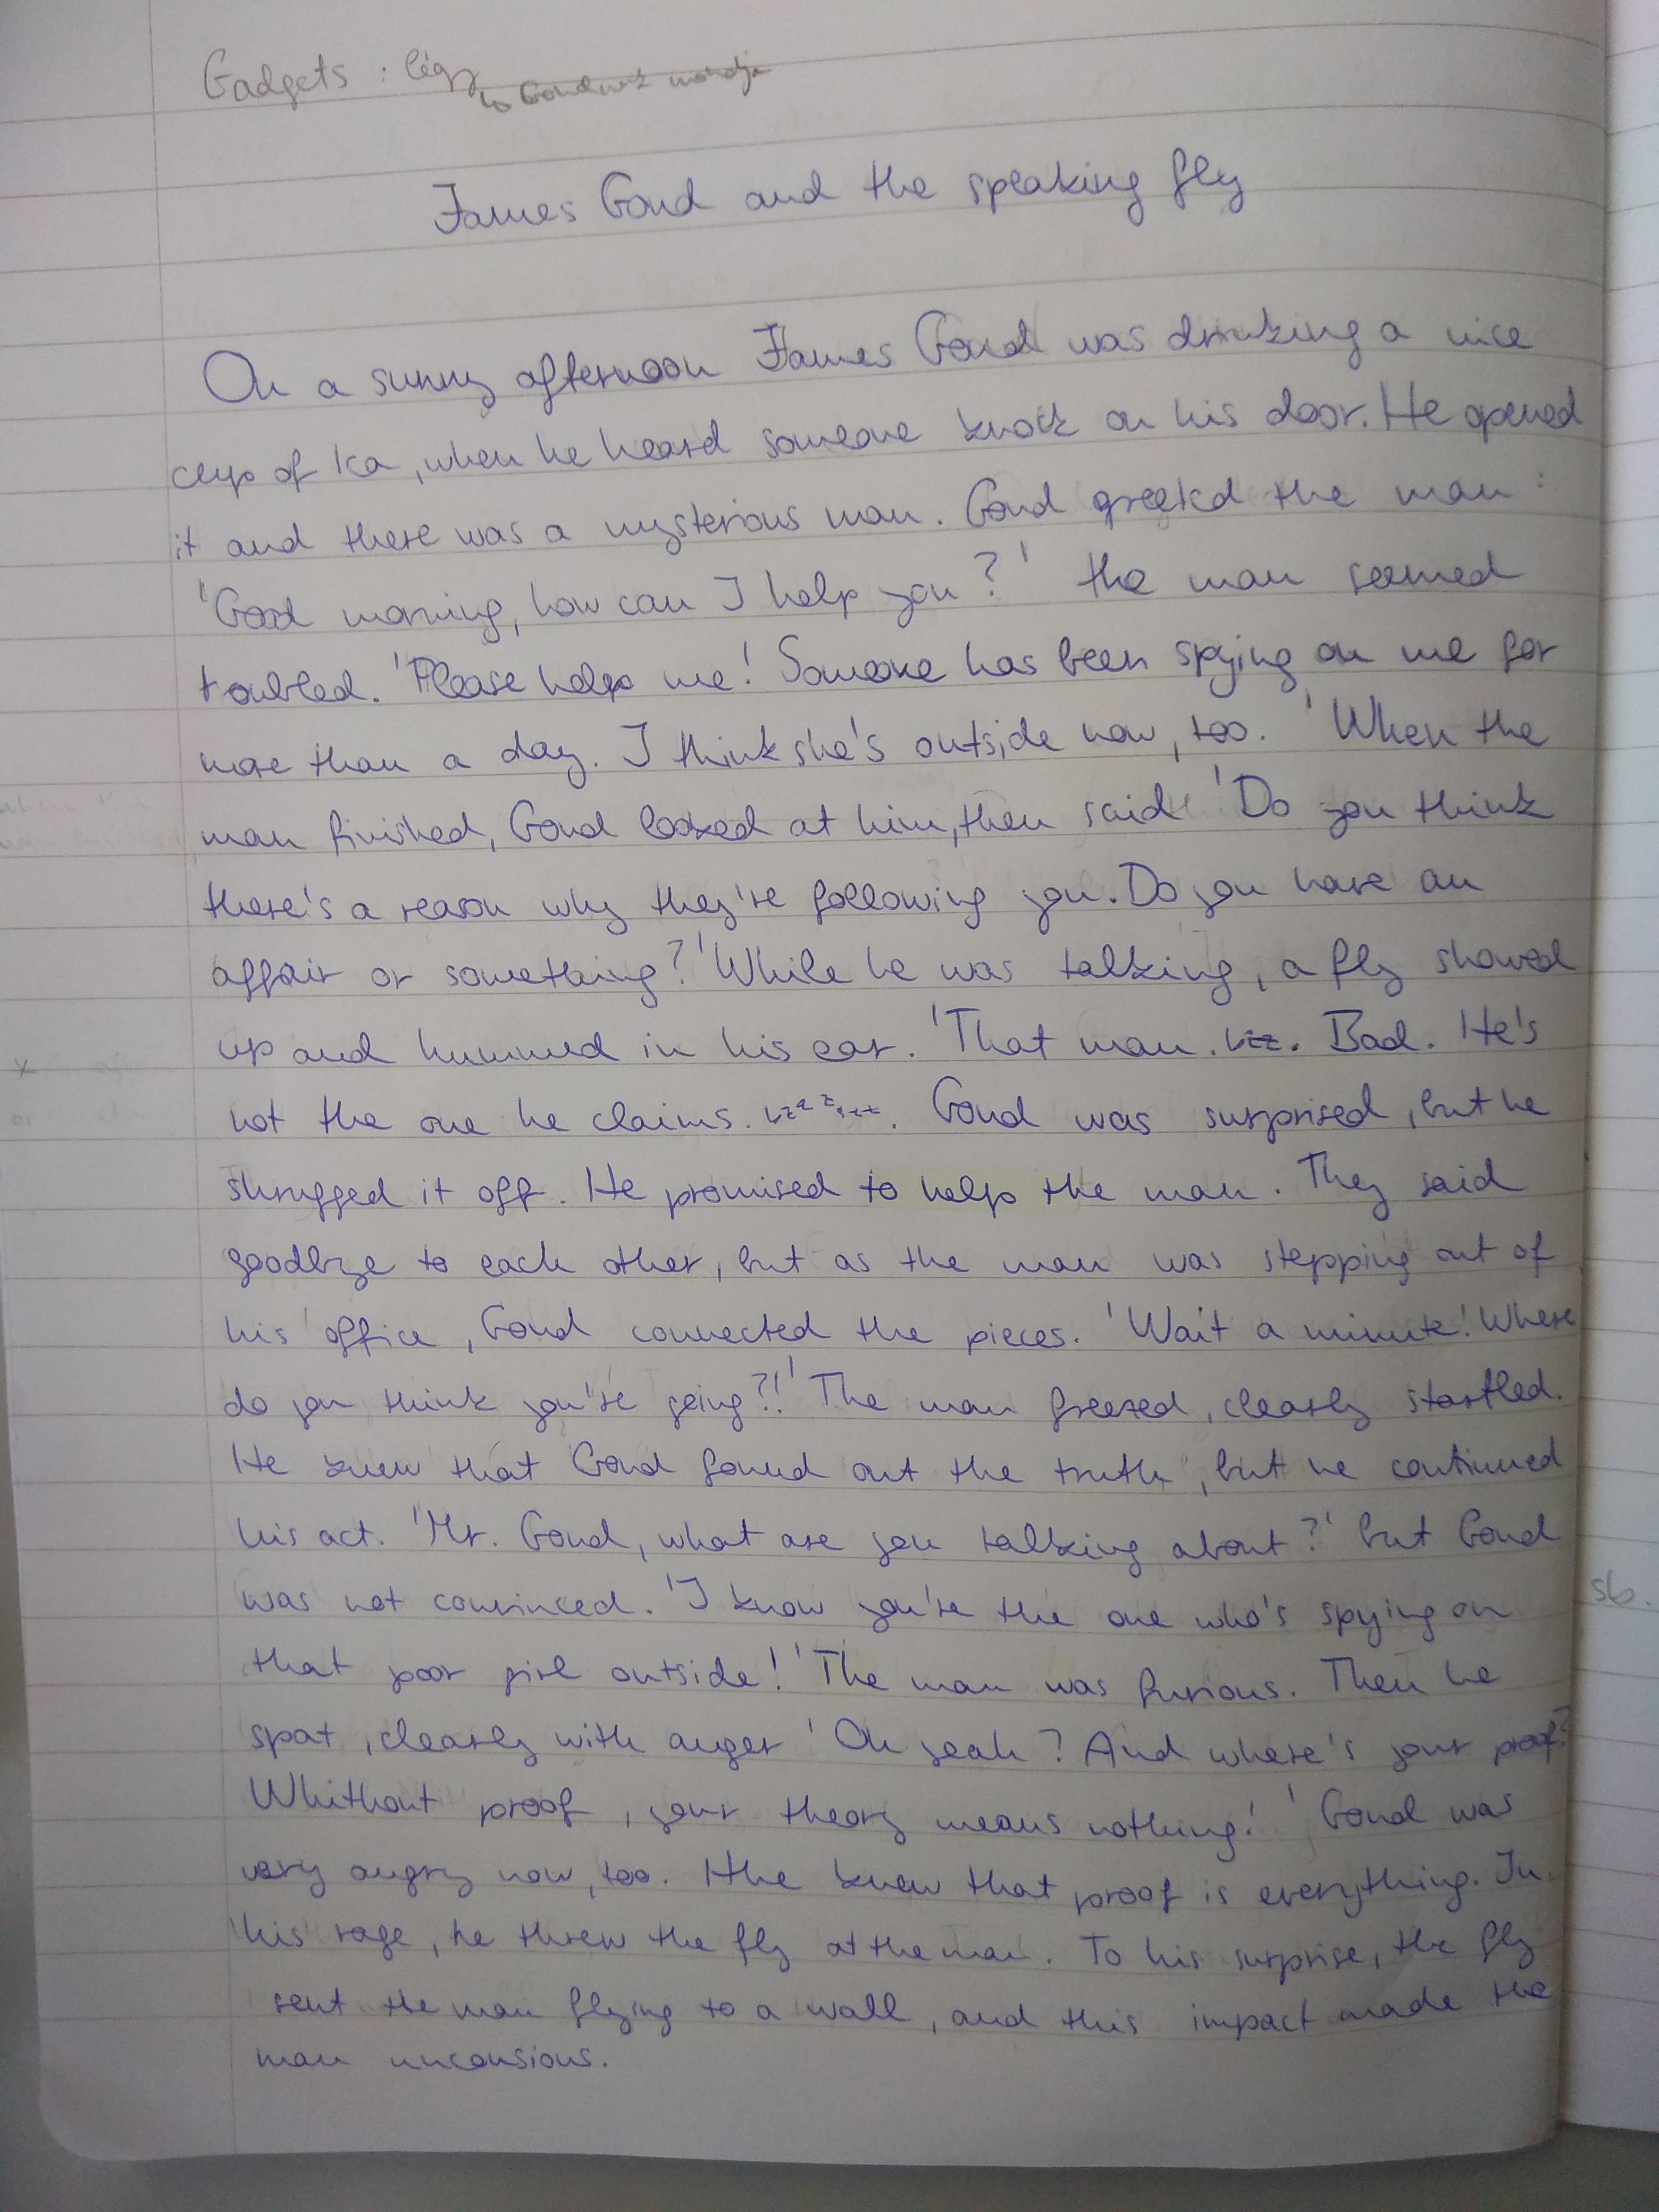 Gadgets : légy
↳ Gondnak mondja
James Gond and the speaking fly
On a sunny afternoon James Gond was drinking a nice
cup of tea, when he heard someone knock on his door. He opened
it and there was a mysterious man. Gond greeted the man:
'Good morning, how can I help you?' the man seemed
troubled. 'Please help me! Someone has been spying on me for
more than a day. I think she's outside now, too. ' When the
man finished, Gond looked at him, then said 'Do you think
there's a reason why they're following you. Do you have an
affair or something?' While he was talking, a fly showed
up and hummed in his ear. 'That man. bzz. Bad. He's
not the one he claims. bzzzzzz. Gond was surprised, but he
shrugged it off. He promised to help the man. They said
goodbye to each other, but as the man was stepping out of
his office, Gond connected the pieces. 'Wait a minute! Where
do you think you're going?!' The man freezed, clearly startled.
He knew that Gond found out the truth, but he continued
his act. 'Mr. Gond, what are you talking about?' but Gond
was not convinced. 'I know you're the one who's spying on
that poor girl outside!' The man was furious. Then he
spat, clearly with anger 'Oh yeah? And where's your proof?
Whithout proof, your theory means nothing!' Gond was
very angry now, too. Hhe knew that proof is everything. In
his rage, he threw the fly at the man. To his surprise, the fly
sent the man flying to a wall, and this impact made the
man unconsious.
sb.